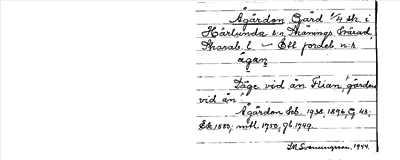 Ågården Gård 1/4 sk. i
Härlunda s:n, Skånings härad,
Skarab. l. — Ett fordeb n:r.
ågaṇ
Läge vid ån Flian, 'gården
vid ån'.
Ågården hb. 1938, 1896, G 43,
Ek 1880; mtl 1750, jb 1749.
1944.